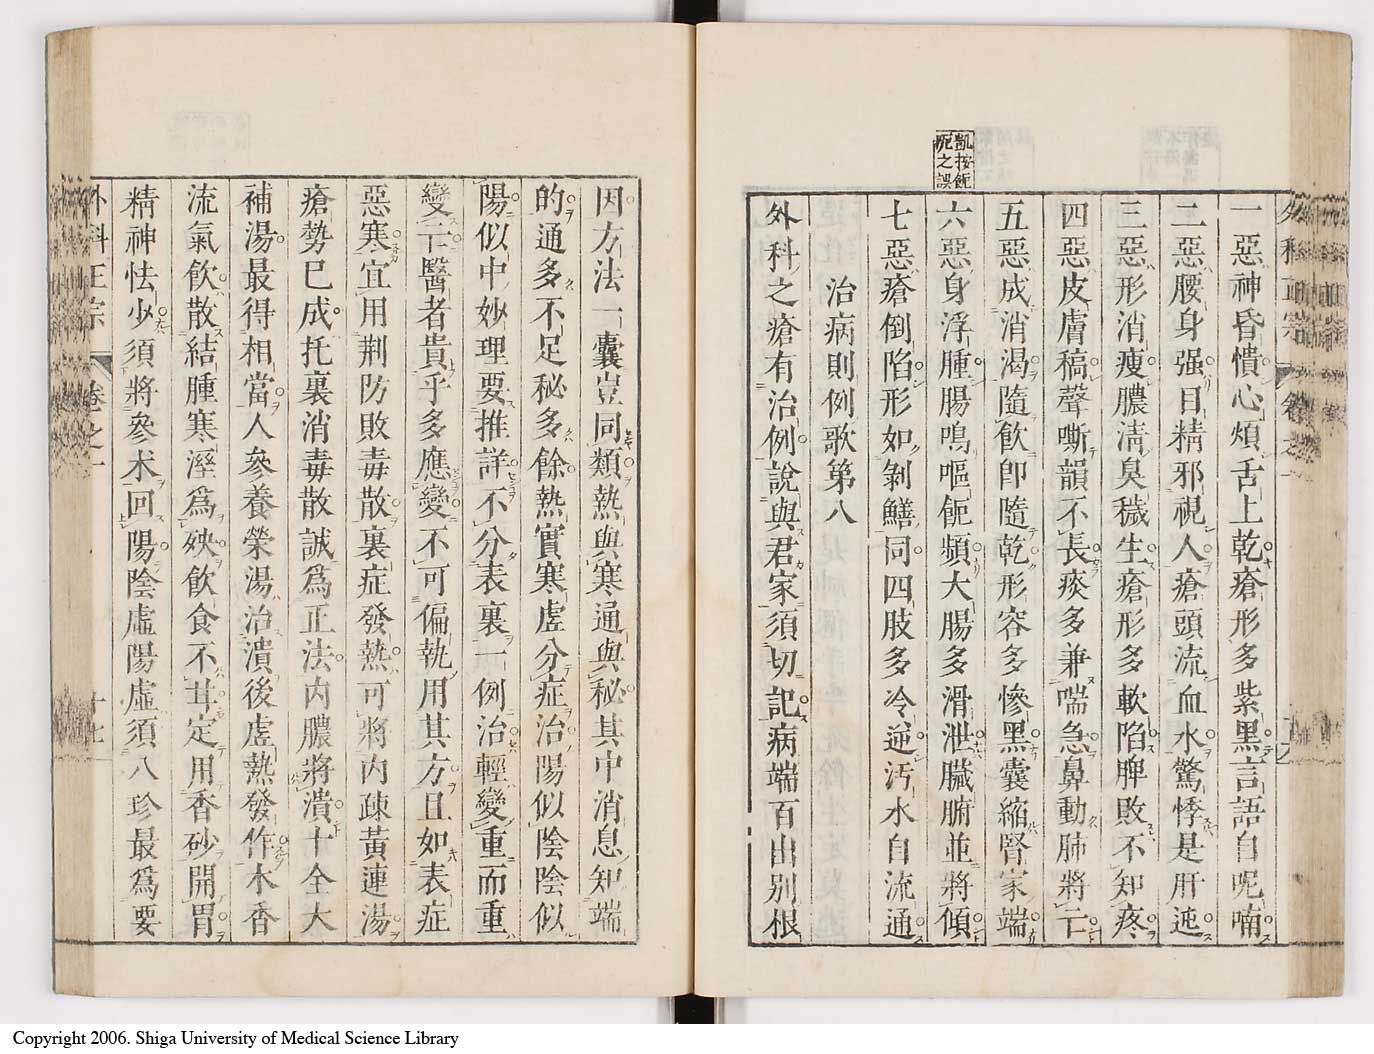 一惡神昏憒心煩舌上乾瘡形多紫黑言語自呢喃
二惡腰身强目精邪視人瘡頭流血水驚悸是肝迍
三惡形消瘦膿淸臭穢生瘡形多軟陷脾敗不知疼
四惡皮膚稿聲嘶韻不長痰多兼喘急鼻動肺將亡
五惡成消渴隨飮卽隨乾形容多慘黑囊縮腎家端
凱按䭇
呢之誤
六惡身浮腫腸鳴嘔䭇頻大腸多滑泄臟腑並將傾
七惡瘡倒陷形如剝鱔同四肢多冷逆汚水自流通
治病則例歌第八
外科之瘡有治例說與君家須切記病端百出別根
因方法一囊豈同類熱與寒通與秘其中消息知端
的通多不足秘多餘熱實寒虛分症治陽似陰陰似
陽似中妙理要推詳不分表裏一例治輕變重而重
變亡醫者貴乎多應變不可偏執用其方且如表症
惡寒宜用荆防敗毒散裏症發熱可將內疎黃連湯
瘡勢已成托裏消毒散誠爲正法內膿將潰十全大
補湯最得相當人參養榮湯治潰後虛熱發作木香
流氣飮散結腫寒溼爲殃飮食不甘定用香砂開胃
精神怯少須將參术回陽陰虛陽虛須八珍最爲要
外科正宗 卷之一 十七
Copyright 2006. Shiga University of Medical Science Library